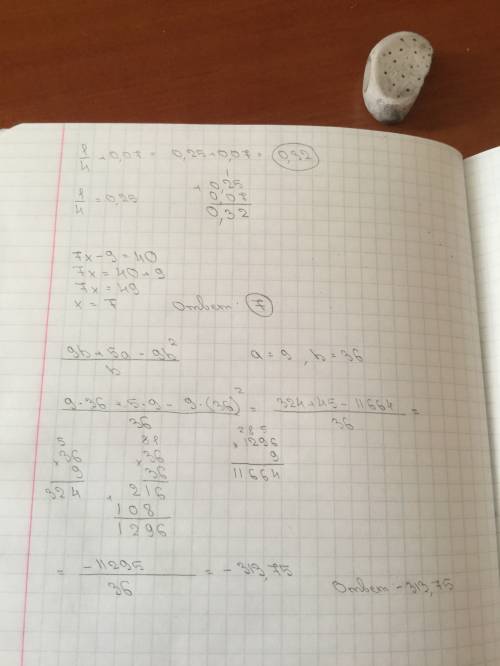 1/4 + 0,07 = 0,25 + 0,07 = 0,32
1/4 = 0,25
1
+ 0,25
0,07
0,32
7x - 9 = 40
7x = 40 + 9
7x = 49
x = 7 Ответ: 7
(9b + 5a - 9b²)/b a = 9, b = 36
(9·36 + 5·9 - 9·(36)²)/36 = (324 + 45 - 11664)/36 =
5
×36
9
324
×36
36
+ 216
108
1296
285
×1296
9
11664
= -11295/36 = -313,75 Ответ -313,75